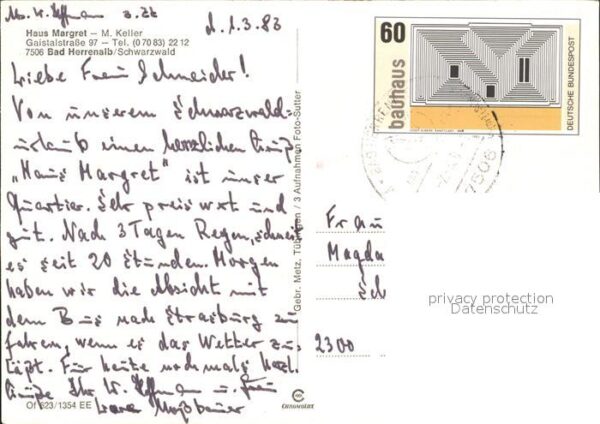 Abs. W. Hoffmann z. Zt. d. 1.3.83
Haus Margret – M. Keller
Gaistalstraße 97 – Tel. (0 70 83) 22 12
7506 Bad Herrenalb/Schwarzwald
Liebe Frau Schneider!
Von unserem Schwarzwald-
urlaub einen herzlichen Gruß
„Haus Margret" ist unser
Quartier. Sehr preiswert und
gut. Nach 3 Tagen Regen, schneit
es seit 20 Stunden. Morgen
haben wir die Absicht mit
dem Bus nach Strasburg zu
fahren, wenn es das Wetter zu-
läßt. Für heute nochmals herzl.
Grüße Ihr W. Hoffmann u. Frau
Moßbauer
Of 623/1354 EE
CHROMOLUX
Gebr. Metz, Tübingen / 3 Aufnahmen Foto-Sutter
60
bauhaus
DEUTSCHE BUNDESPOST
7506
Frau
Magda
Sch
2300
privacy protection
Datenschutz